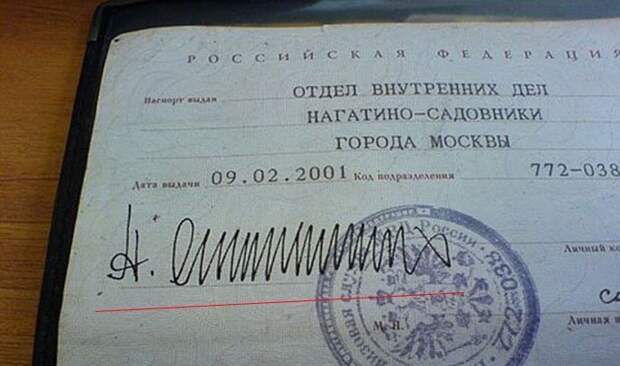 РОССИЙСКАЯ ФЕДЕРАЦИЯ
Паспорт выдан ОТДЕЛ ВНУТРЕННИХ ДЕЛ
НАГАТИНО-САДОВНИКИ
ГОРОДА МОСКВЫ
Дата выдачи 09.02.2001 Код подразделения 772-038
Личный
М. П.
Личная
России